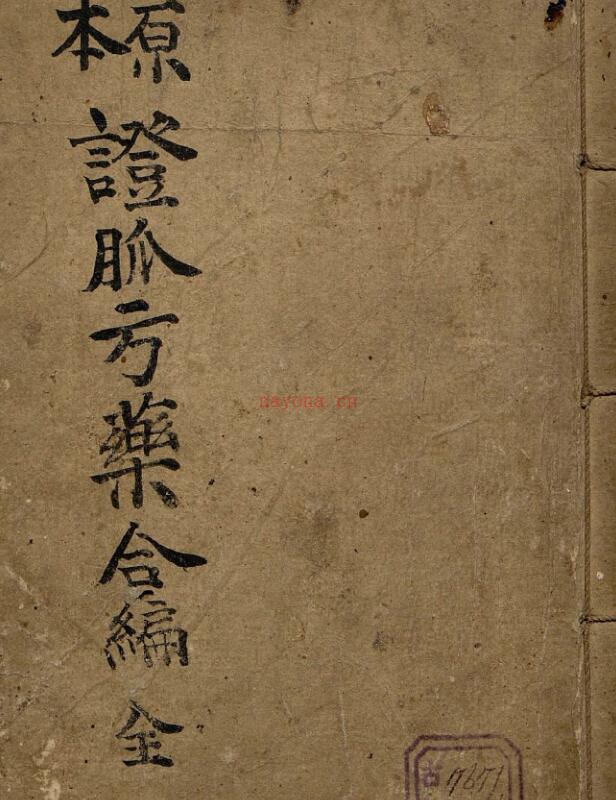 原本
證脈方藥合編 全
nayona.cn
古 7671